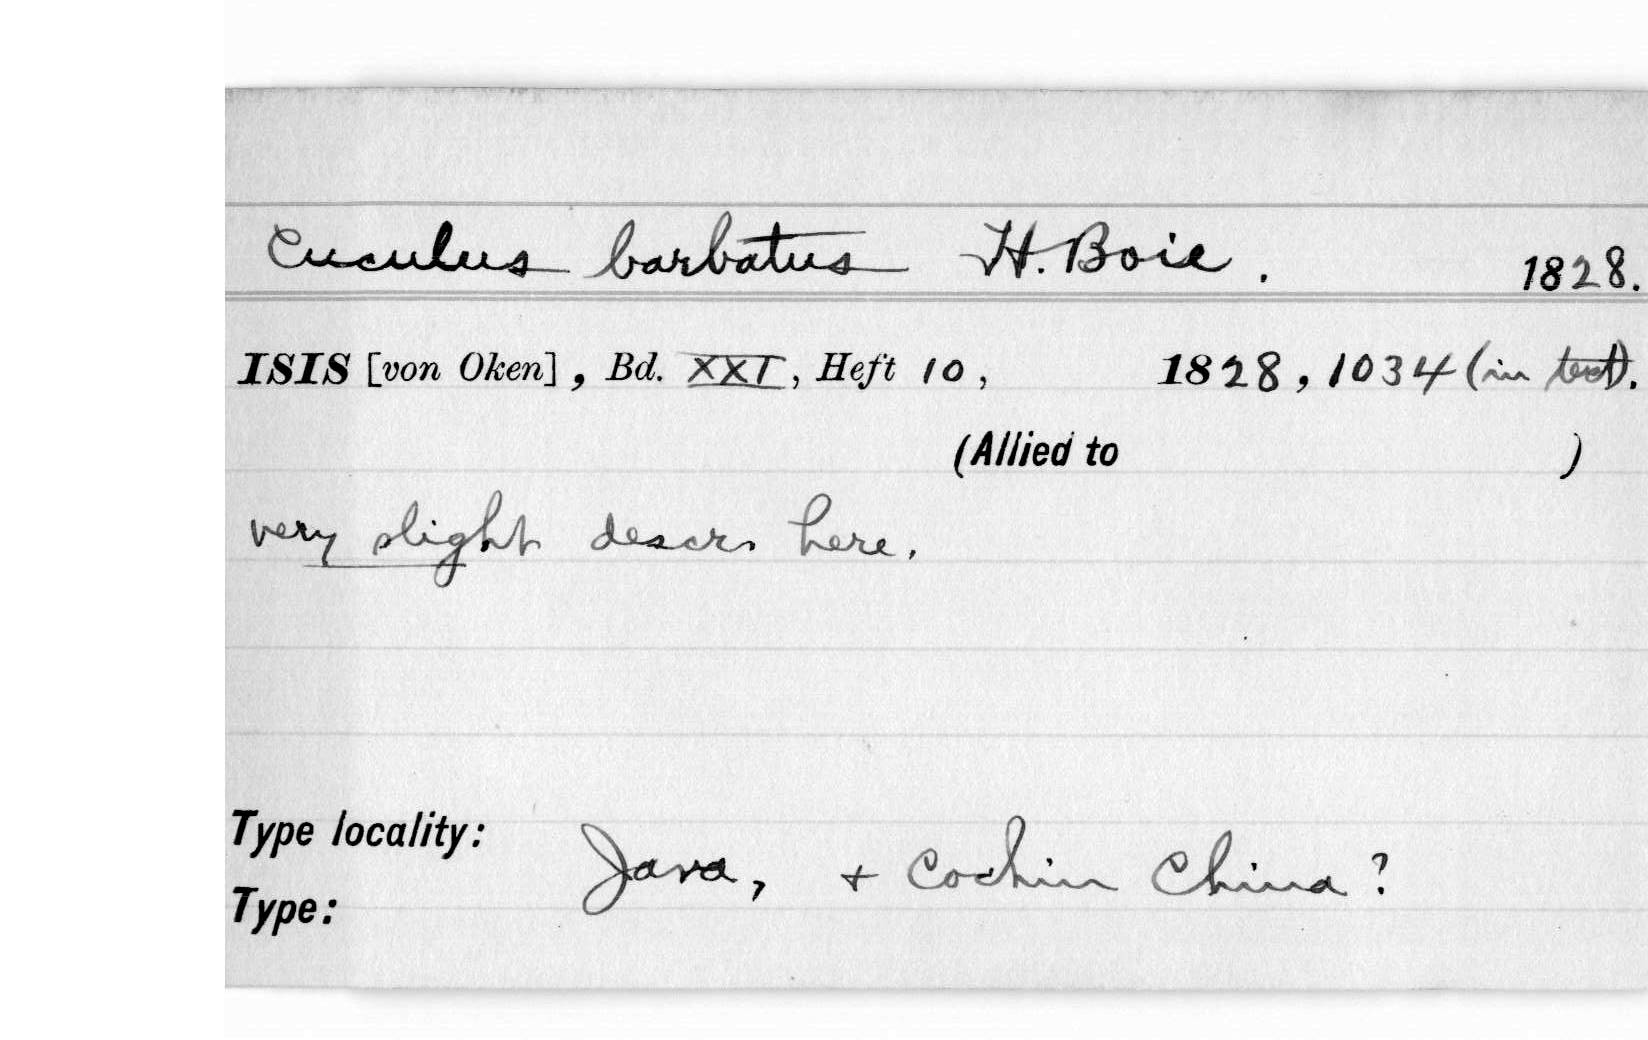 Cuculus barbatus H. Boie. 1828.
ISIS [von Oken], Bd. XXI, Heft 10, 1828, 1034 (in text).
(Allied to )
very slight descr. here.
Type locality: Java, + Cochin China?
Type: